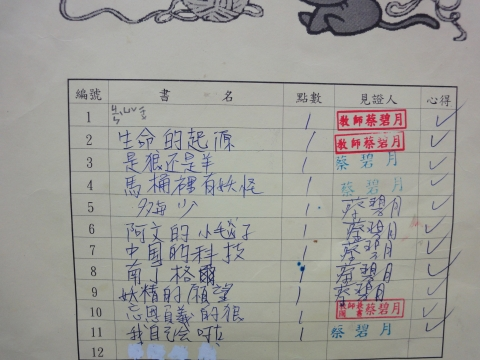 編號 書名 點數 見證人 心得
1 1 教師蔡碧月 ✓
2 生命的起源 1 教師蔡碧月 ✓
3 是狼还是羊 1 蔡碧月 ✓
4 馬桶裡有妖怪 1 蔡碧月 ✓
5 1 蔡碧月 ✓
6 阿文的小毯子 1 蔡碧月 ✓
7 中国的科技 1 蔡碧月 ✓
8 南丁格爾 1 蔡碧月 ✓
9 妖精的願望 1 蔡碧月 ✓
10 忘恩負義的狼 1 蔡碧月 ✓
11 我自己会 1 蔡碧月 ✓
12